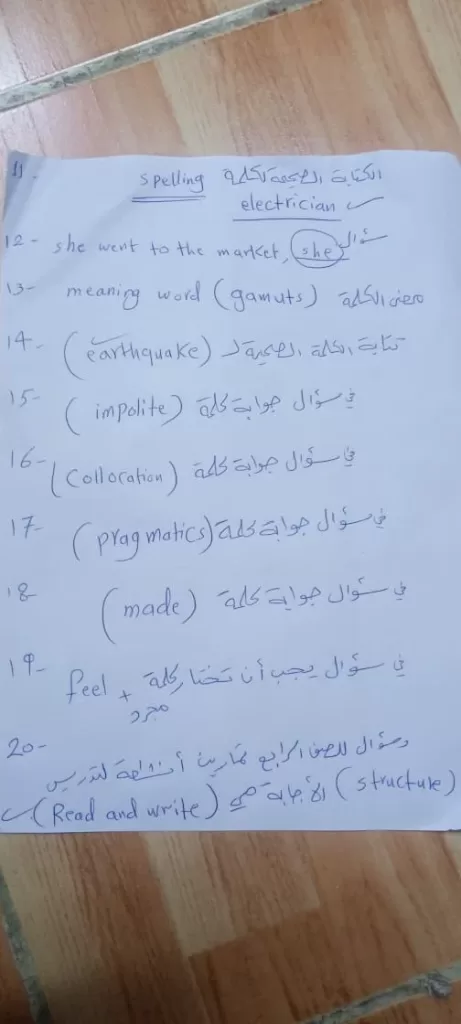 11- spelling الكتابة الصحيحة لكلمة
electrician ✓
12- she went to the market, she سؤال
13- meaning word (gamuts) معنى الكلمة
14- (earthquake) كتابة الكلمة الصحيحة لـ
15- (impolite) في سؤال جوابة كلمة
16- (collocation) في سؤال جوابة كلمة
17- (pragmatics) في سؤال جوابة كلمة
18- (made) في سؤال جوابة كلمة
19- في سؤال يجب أن تختار كلمة feel + مجرد
20- وسؤال للصف الرابع تمارين أنشطة لتدريس
(structure) الأجابة هي (Read and write) ✓